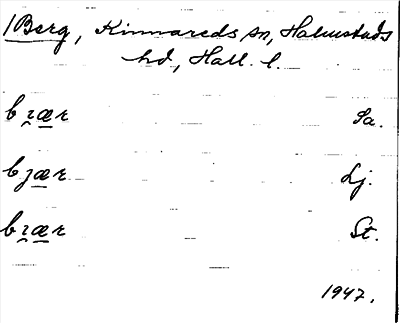 /Berg, Kinnareds sn, Halmstads
hd, Hall. l.
bɿæ̲r Sa.
bȷæ̲r Lj.
bɿæ̲r St.
1947.